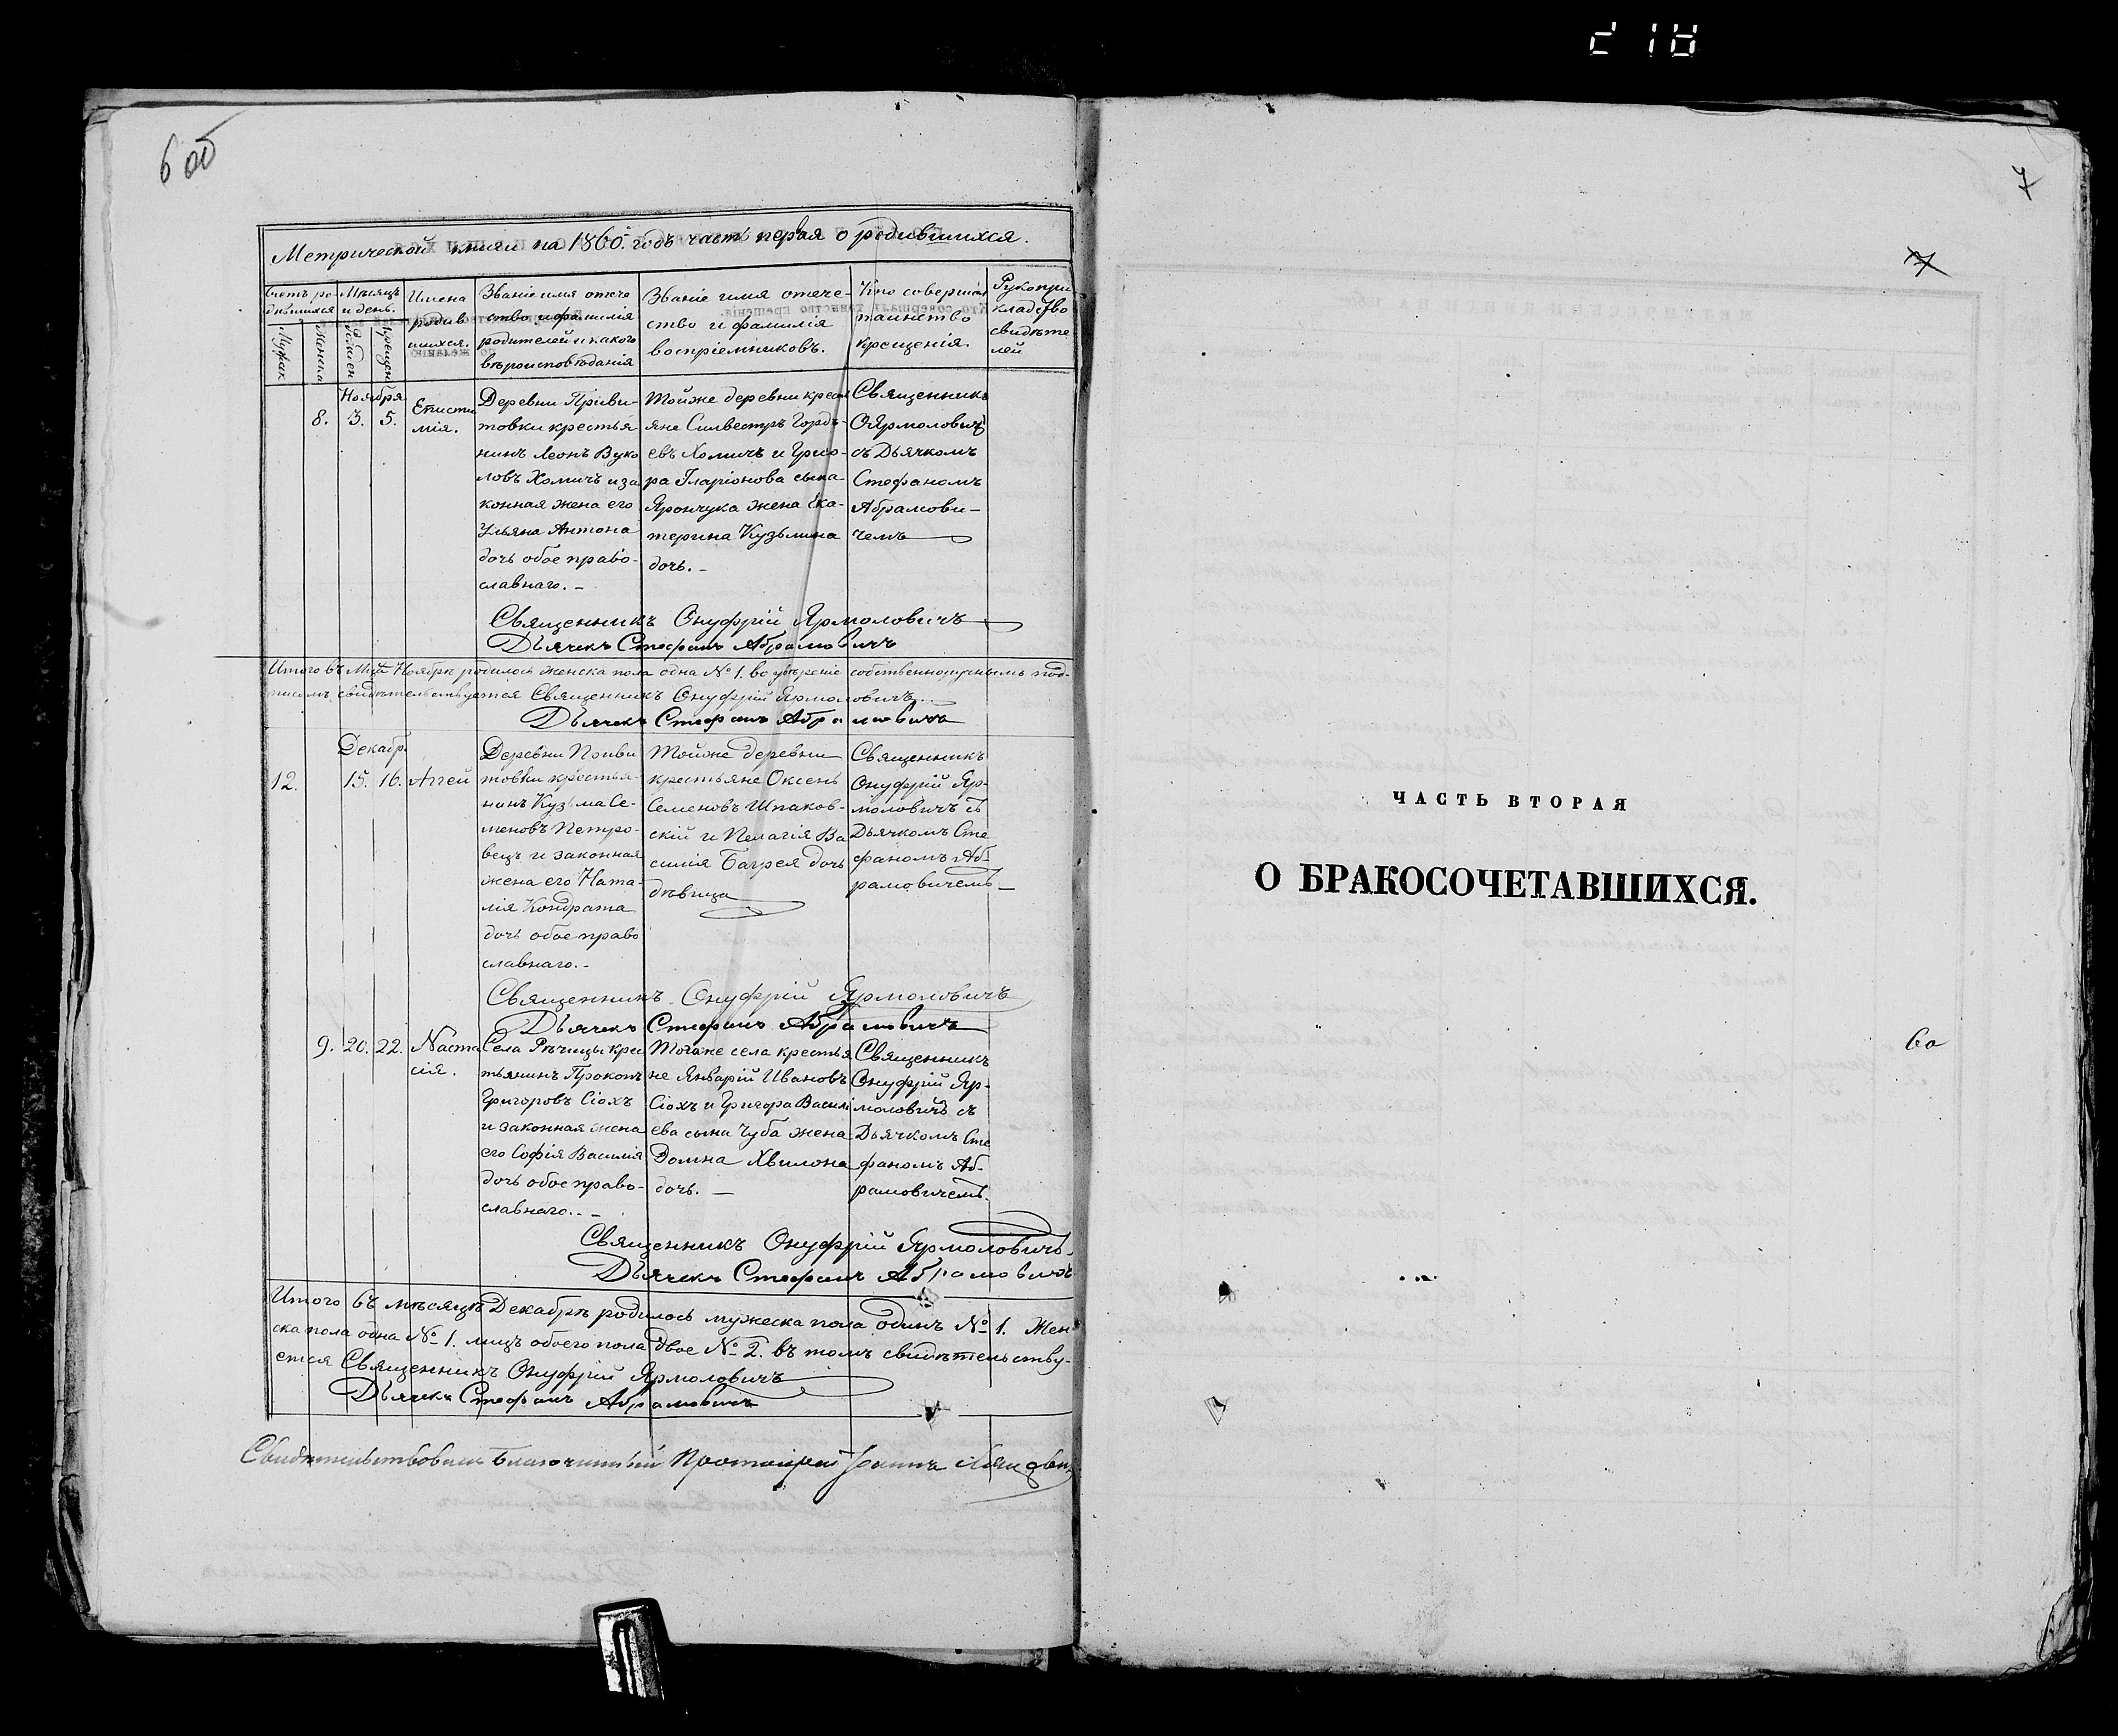 6 об
Метрической книги на 1860. годъ часть первая о родившихся.
Счетъ ро-
дившихся
Мужск
Женска
Мѣсяцъ
и день.
Рожден
Крещен
Имена
родив
шихся.
Званіе имя отече
ство и фамилія
родителей и какого
вѣроисповѣданія
Званіе имя отече-
ство и фамилія
воспріемниковъ.
Кто совершал
таинство
крещенія.
Рукопри-
кладство
свидѣте-
лей
Ноября
8. 3. 5.
Еписти
мія.
Деревни Приви-
товки крестья
нинъ Леонъ Вуко
ловъ Хомичъ и за
конная жена его
Ульяна Антона
дочь обое право-
славнаго. -
Тойже деревни крест
яне Силвестръ Гордѣ-
евъ Хомичъ и Григо-
ра Іларіонова сына
Ярончука жена Ека-
терина Кузьмина
дочь. -
Священникъ
О. Ярмоловичъ
съ Дьячкомъ
Стефаномъ
Абрамови-
чемъ
Священникъ Онуфрій Ярмоловичъ
Дьячекъ Стефанъ Абрамовичъ
Итого въ Мцѣ Ноябрѣ родилось женска пола одна № 1. во увѣреніе собственноручнымъ под-
писомъ свидѣтельствуется Священникъ Онуфрій Ярмоловичъ
Дьячекъ Стефанъ Абрамовичъ
Декабр.
12. 15. 16. Аггей
Деревни Приви
товки крестья-
нинъ Кузьма Се-
меновъ Петро-
вецъ и законная
жена его Ната-
лія Кондрата
дочь обое право
славнаго. -
Тойже деревни
крестьяне Оксень
Семеновъ Шпаков-
скій и Пелагія Ва
силія Багрея дочь
дѣвица
Священникъ
Онуфрій Яр-
моловичъ съ
Дьячкомъ Сте
фаномъ Аб-
рамовичемъ
Священникъ Онуфрій Ярмоловичъ
Дьячекъ Стефанъ Абрамовичъ
9. 20. 22.
Наста
сія.
Села Рѣчицы крес
тьянинъ Прокопъ
Григоровъ Сіохъ
и законная жена
его Софія Василія
дочь обое право-
славнаго. -
Тогоже села крестья
не Январій Ивановъ
Сіохъ и Григора Васил
ева сына Чуба жена
Домна Хвилона
дочь. -
Священникъ
Онуфрій Яр-
моловичъ съ
Дьячкомъ Сте
фаномъ Аб-
рамовичемъ.
Священникъ Онуфрій Ярмоловичъ
Дьячекъ Стефанъ Абрамовичъ
Итого въ мѣсяцѣ Декабрѣ родилось мужеска пола одинъ № 1. Жен-
ска пола одна № 1. лицъ обоего пола двое № 2. въ томъ свидѣтельству-
ется Священникъ Онуфрій Ярмоловичъ
Дьячекъ Стефанъ Абрамовичъ
Свидѣтельствовалъ Благочинный Протоіерей Іоаннъ
7
7
ЧАСТЬ ВТОРАЯ
О БРАКОСОЧЕТАВШИХСЯ.